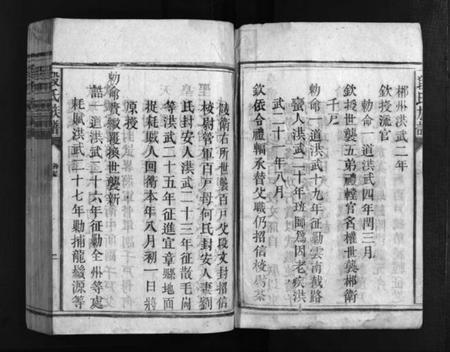 郴州洪武二年
欽授流官
勅命一道洪武四年閏三月
欽授世襲五弟禮𨍏官名權世襲郴衛
千戶
勅命一道洪武十九年征勦雲南截路
蠻人洪武二十年班師爲因老疾洪
武二十一年八月
欽依合禮輒承替父職仍招信校尉案
陵衛右所世襲百戶父段文封招信
校尉管軍百戶母何氏封安人妻劉
氏封安人洪武二十三年征散毛崗
等洪武二十五年征進宜章縣地面
捉耗賊人回衛本年八月初一日將
原授
勅命賫繳換世襲新
誥一道洪武二十六年征勦全州等處
耗賊洪武二十七年勦捕龍縉源等
段氏族譜